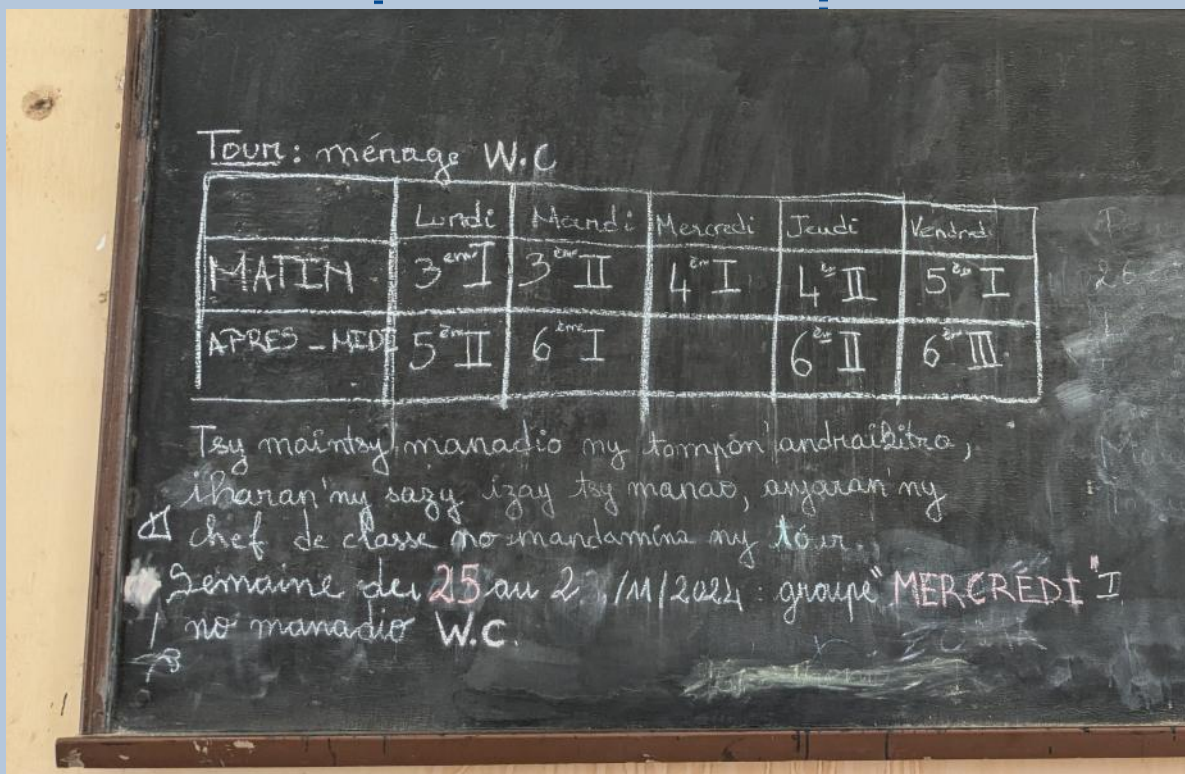 Tour : ménage W.C
Lundi Mardi Mercredi Jeudi Vendredi
MATIN 3ème I 3ème II 4èm I 4èm II 5èm I
APRES-MIDI 5èm II 6ème I 6èm II 6èm III
Tsy maintsy manadio ny tompon'andraikitra,
iharan'ny sazy izay tsy manao, anjaran'ny
chef de classe no mandamina ny tour.
Semaine du 25 au /11/2024 : groupe "MERCREDI" I
no manadio W.C.